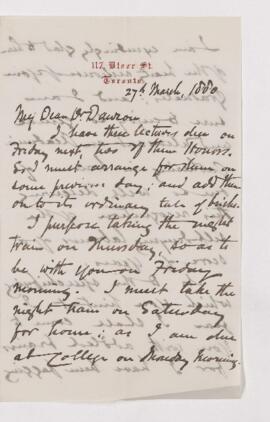 117, Bloor St.
Toronto.
27th March, 1880
My Dear Dr Dawson
I have three lectures due on
Friday next, two of them Honors.
So I must arrange for them on
some previous day; and add them
on to its ordinary tale of bricks.
I purpose taking the night
train on Thursday, so as to
be with you on Friday
morning. I must take the
night train on Saturday
for home: as I am due
at College on Monday morning.